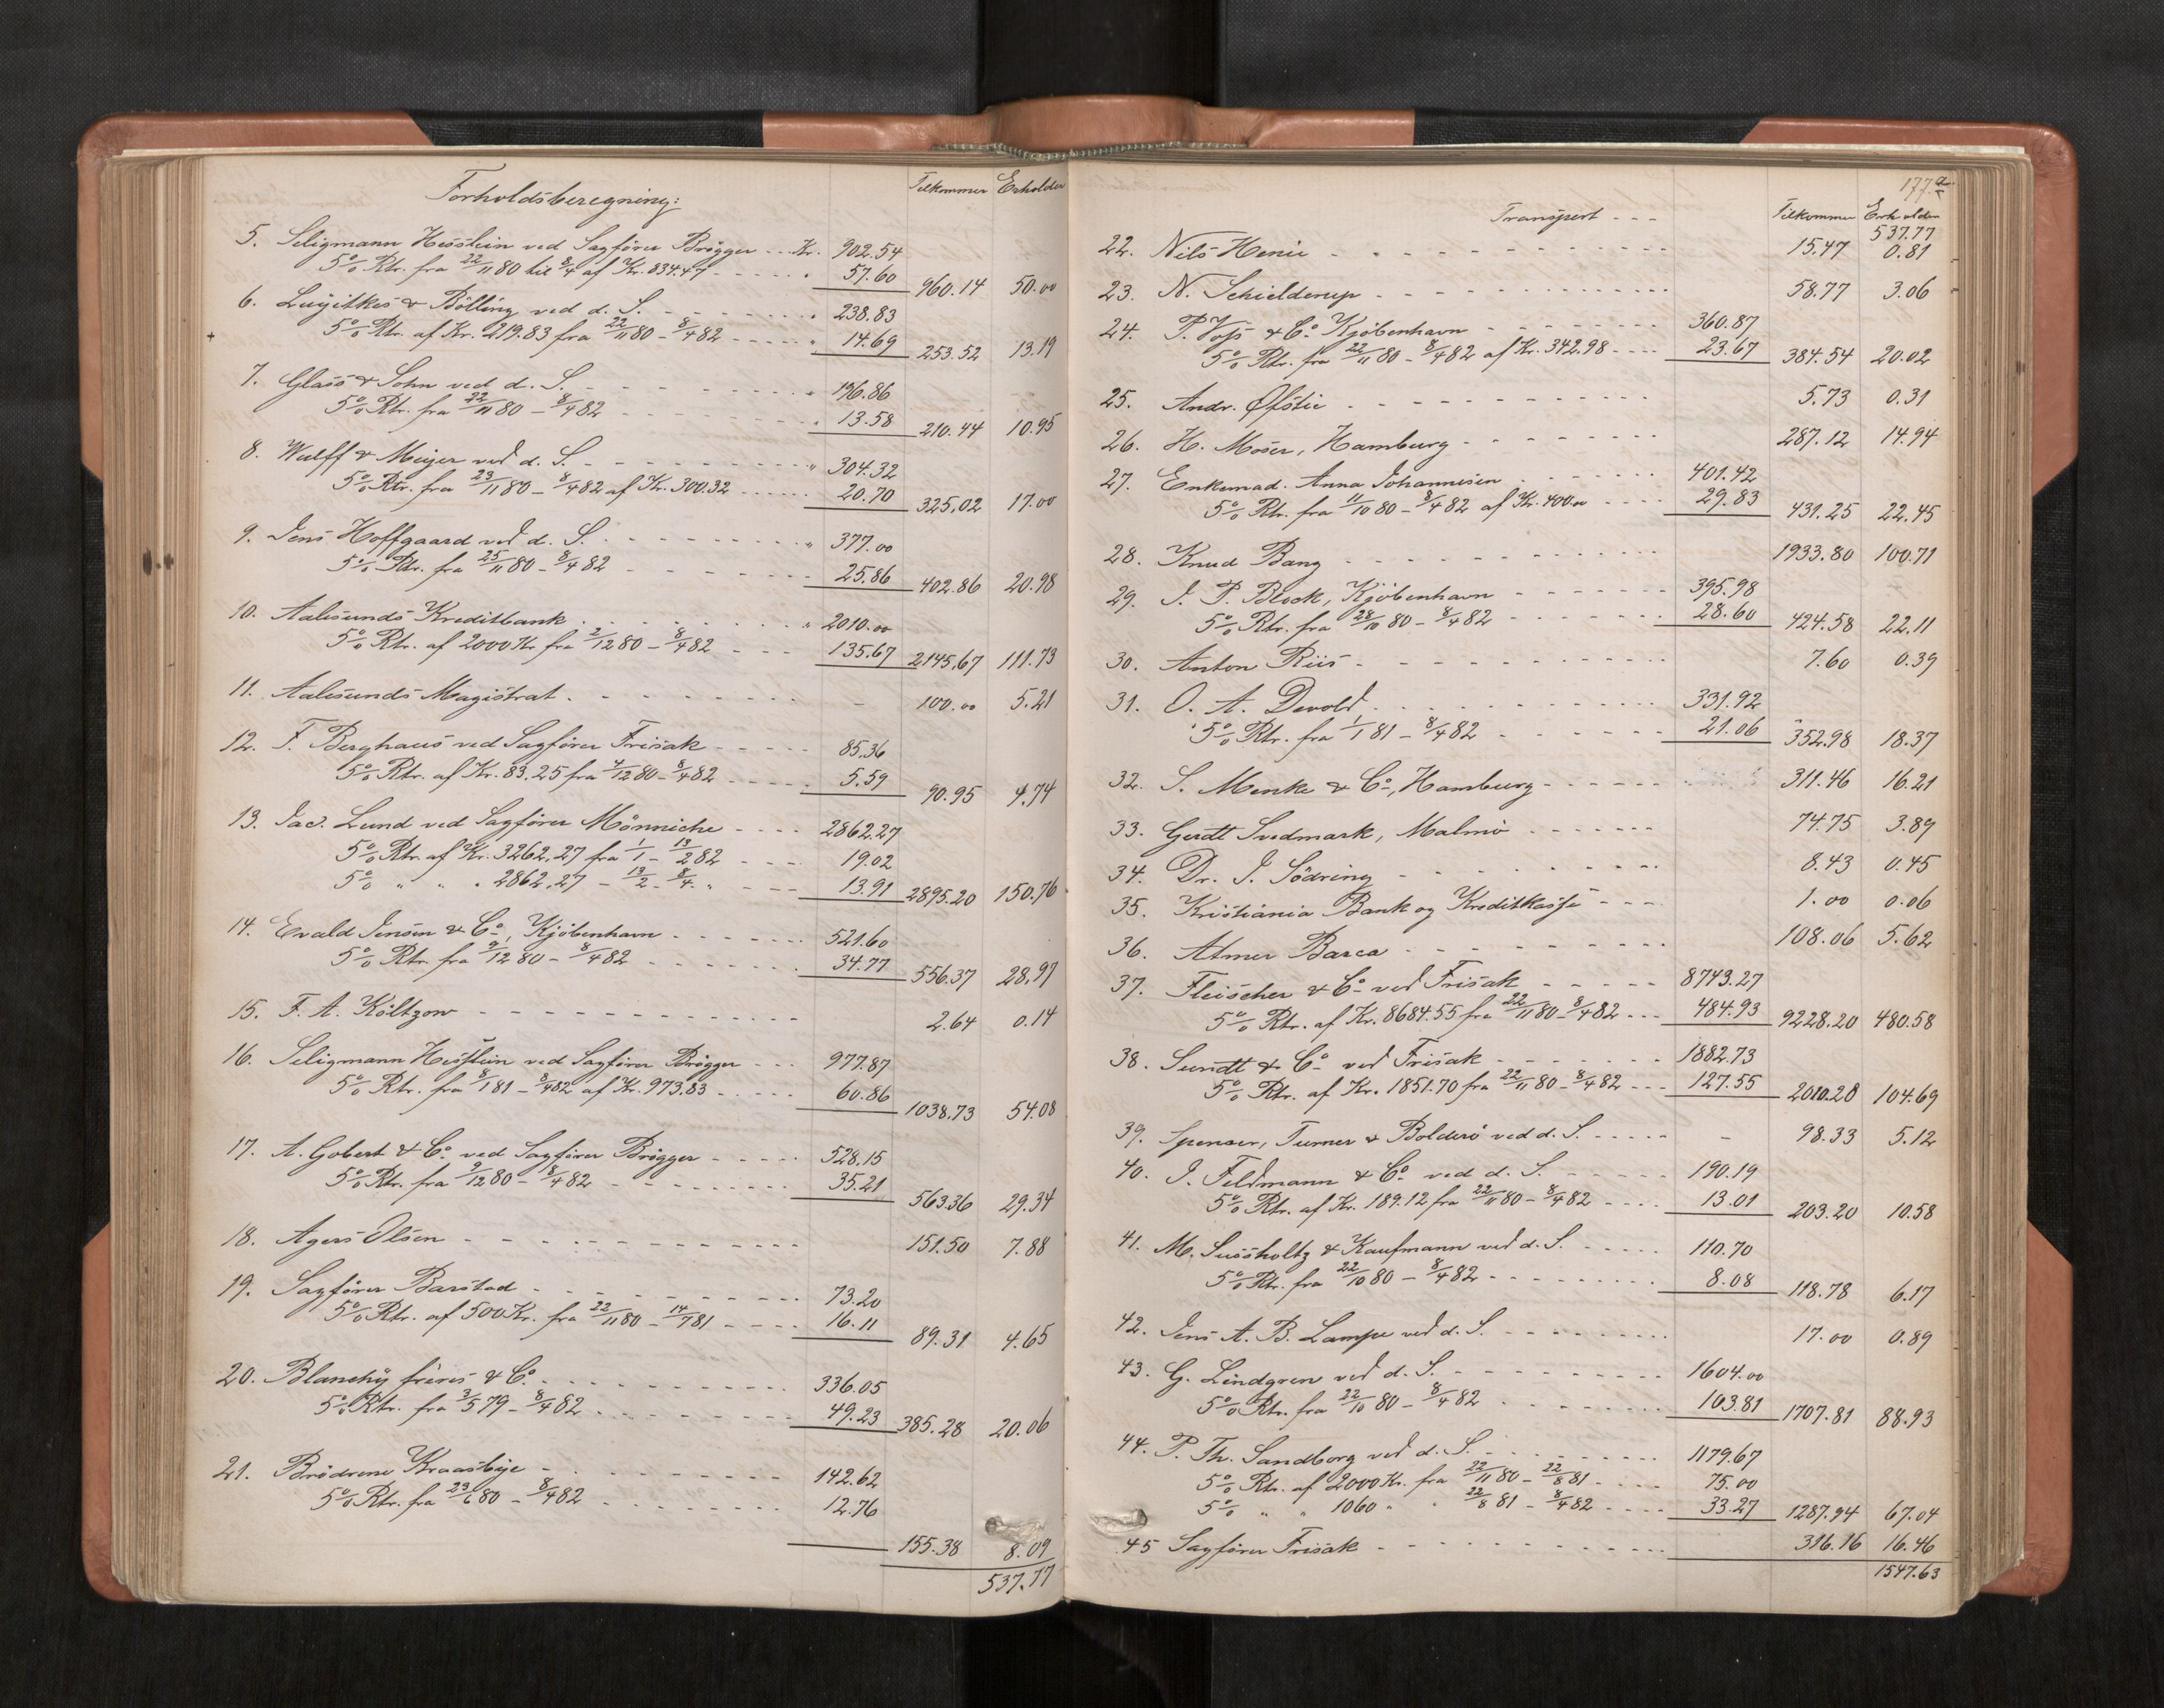 Forholdsberegning: Tilkommer Erholder
5. Seligmann Hesslein ved Sagfører Brøgger --- Kr. 902.54
5% Rtr. fra 22/11 80 til 8/4 af Kr. 834.47 ---- " 57.60 960.14 50.00
6. Luyitkes & Bölling ved d. S. - - - " 238.83
5% Rtr. af Kr. 219.83 fra 22/11 80 - 8/4 82 ---- " 14.69 253.52 13.19
7. Glass & Sohn ved d. S. - - - " 196.86
5% Rtr. fra 22/11 80 - 8/4 82 - - - " 13.58 210.44 10.95
8. Wulff & Meijer ved d. S. - - - " 304.32
5% Rtr. fra 23/11 80 - 8/4 82 af Kr. 300.32 ---- 20.70 325.02 17.00
9. Jens Hoffgaard ved d. S. - - - " 377.00
5% Rtr. fra 25/11 80 - 8/4 82 - - - 25.86 402.86 20.98
10. Aalesunds Kreditbank - - - " 2010.00
5% Rtr. af 2000 Kr fra 2/12 80 - 8/4 82 - - - 135.67 2145.67 111.73
11. Aalesunds Magistrat - - - – 100.00 5.21
12. F. Berghaus ved Sagfører Frisak - - - 85.36
5% Rtr. af Kr. 83.25 fra 4/12 80 - 8/4 82 ---- 5.59 90.95 4.74
13. Jac. Lund ved Sagfører Mönniche - - - 2862.27
5% Rtr. af Kr. 3262.27 fra 1/1 - 13/2 82 - - - 19.02
5% " " " 2862.27 - 13/2 - 8/4 " - - - 13.91 2895.20 150.76
14. Evald Jensen & Co, Kjöbenhavn - - - 521.60
5% Rtr. fra 9/12 80 - 8/4 82 - - - 34.77 556.37 28.97
15. F. A. Költzow - - - 2.64 0.14
16. Seligmann Hesslein ved Sagfører Brøgger - - - 977.87
5% Rtr. fra 8/1 81 - 8/4 82 af Kr. 973.83 - - - 60.86 1038.73 54.08
17. A. Gobert & Co ved Sagfører Brøgger - - - 528.15
5% Rtr. fra 9/12 80 - 8/4 82 - - - 35.21 563.36 29.34
18. Agers Olsen - - - 151.50 7.88
19. Sagfører Barstad - - - 73.20
5% Rtr. af 500 Kr. fra 22/11 80 - 14/7 81 - - - 16.11 89.31 4.65
20. Blanchy frères & Co. - - - 336.05
5% Rtr. fra 3/5 79 - 8/4 82 - - - 49.23 385.28 20.06
21. Brödrene Kraasbye - - - 142.62
5% Rtr. fra 23/6 80 - 8/4 82 - - - 12.76
155.38 8.09
537.77
177.a
Transport - - - Tilkommer Erholder
537.77
22. Nils Henie - - - 15.47 0.81
23. N. Schielderup - - - 58.77 3.06
24. P. Voss & Co Kjöbenhavn - - - 360.87
5% Rtr. fra 22/11 80 - 8/4 82 af Kr. 342.98 - - - 23.67 384.54 20.02
25. Andr. Øfstie - - - 5.73 0.31
26. H. Moser, Hamburg - - - 287.12 14.94
27. Enkemad. Anna Johannesen - - - 401.42
5% Rtr. fra 11/10 80 - 8/4 82 af Kr. 400.00 - - - 29.83 431.25 22.45
28. Knud Bang - - - 1933.80 100.71
29. J. P. Block, Kjöbenhavn - - - 395.98
5% Rtr. fra 28/10 80 - 8/4 82 - - - 28.60 424.58 22.11
30. Anton Riis - - - 7.60 0.39
31. O. A. Devold - - - 331.92
5% Rtr. fra 1/1 81 - 8/4 82 - - - 21.06 352.98 18.37
32. S. Menke & Co, Hamburg - - - 311.46 16.21
33. Gerdt Svedmark, Malmö - - - 74.75 3.89
34. Dr. J. Södring - - - 8.43 0.45
35. Kristiania Bank og Kreditkasse - - - 1.00 0.06
36. Atmer Barca - - - 108.06 5.62
37. Fleischer & Co ved Frisak - - - 8743.27
5% Rtr. af Kr. 8684.55 fra 22/11 80 - 8/4 82 - - - 484.93 9228.20 480.58
38. Sundt & Co ved Frisak - - - 1882.73
5% Rtr. af Kr. 1851.70 fra 22/11 80 - 8/4 82 - - - 127.55 2010.28 104.69
39. Spenser, Turner & Bolderö ved d. S. - - - – 98.33 5.12
40. J. Feldmann & Co ved d. S. - - - 190.19
5% Rtr. af Kr. 189.12 fra 22/11 80 - 8/4 82 - - - 13.01 203.20 10.58
41. M. Sussholtz & Kaufmann ved d. S. - - - 110.70
5% Rtr. fra 22/10 80 - 8/4 82 - - - 8.08 118.78 6.17
42. Jens A. B. Lampe ved d. S. - - - 17.00 0.89
43. G. Lindgren ved d. S. - - - 1604.00
5% Rtr. fra 22/10 80 - 8/4 82 - - - 103.81 1707.81 88.93
44. P. Th. Sandborg ved d. S. - - - 1179.67
5% Rtr. af 2000 Kr. fra 22/11 80 - 22/8 81 - - - 75.00
5% " " 1060 " " 22/8 81 - 8/4 82 - - - 33.27 1287.94 67.04
45 Sagfører Frisak - - - 316.16 16.46
1547.63